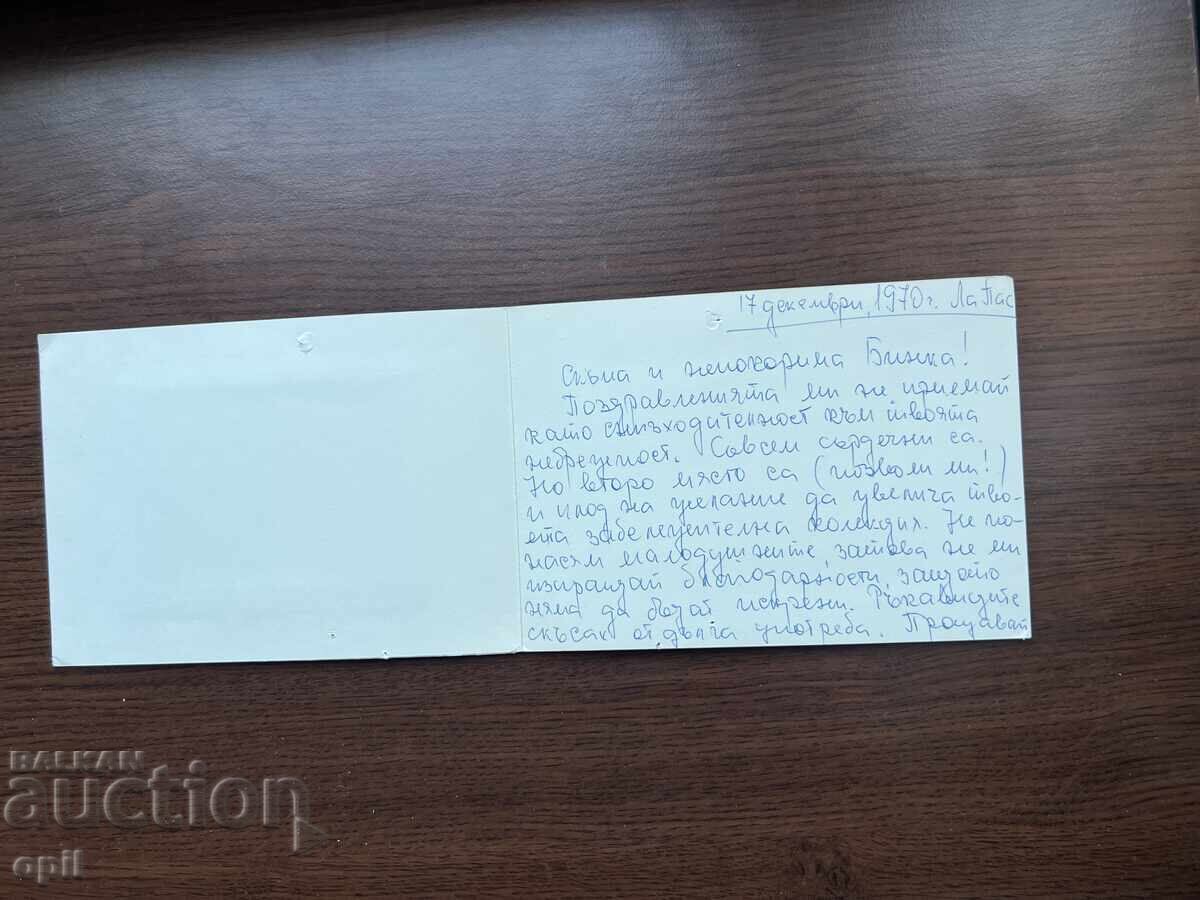 17 декември, 1970 г. Ла Пас
Скъпа и непокорима Бинка!
Поздравленията ми не приемай
като снизходителност към твоята
небрежност. Съвсем сърдечни са.
На второ място са (позволи ми!)
и плод на желание да увелича тво-
ята забележителна колекция. Не по-
насям малодушните, затова не ми
изпращай благодарности, защото
няма да бъдат искрени. Ръкавиците
скъсах от дълга употреба. Прощавай
BALKAN
auction
opil